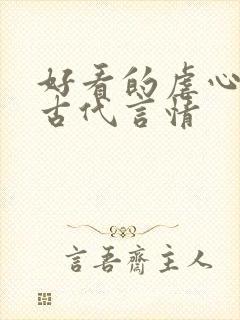 好看的虐心
古代言情
言吾齋主人